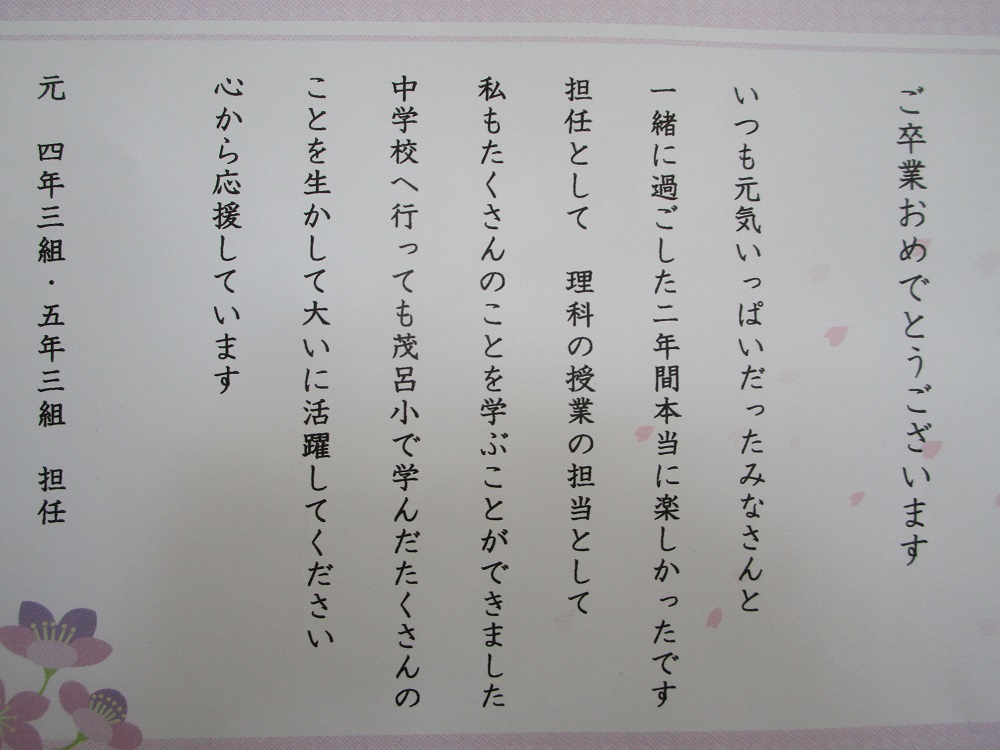 ご卒業おめでとうございます
いつも元気いっぱいだったみなさんと
一緒に過ごした二年間本当に楽しかったです
担任として　理科の授業の担当として
私もたくさんのことを学ぶことができました
中学校へ行っても茂呂小で学んだたくさんの
ことを生かして大いに活躍してください
心から応援しています
元　四年三組・五年三組　担任